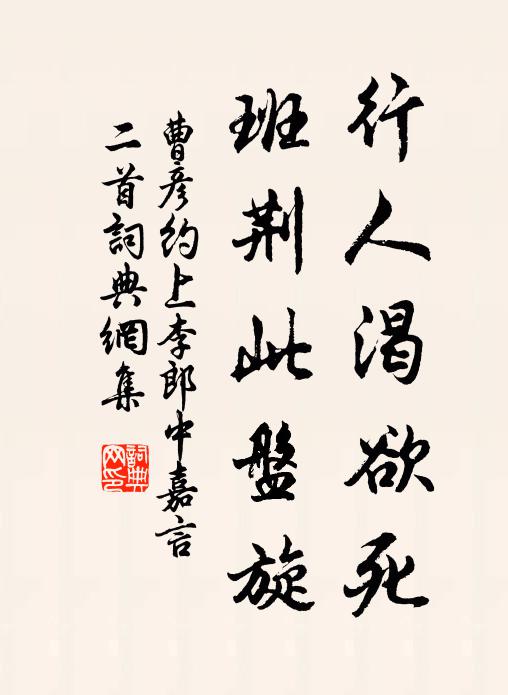 行人渴欲死
班荆此盤旋
曹彦約上李郎中嘉言
二首詞典網集
詞典
网印